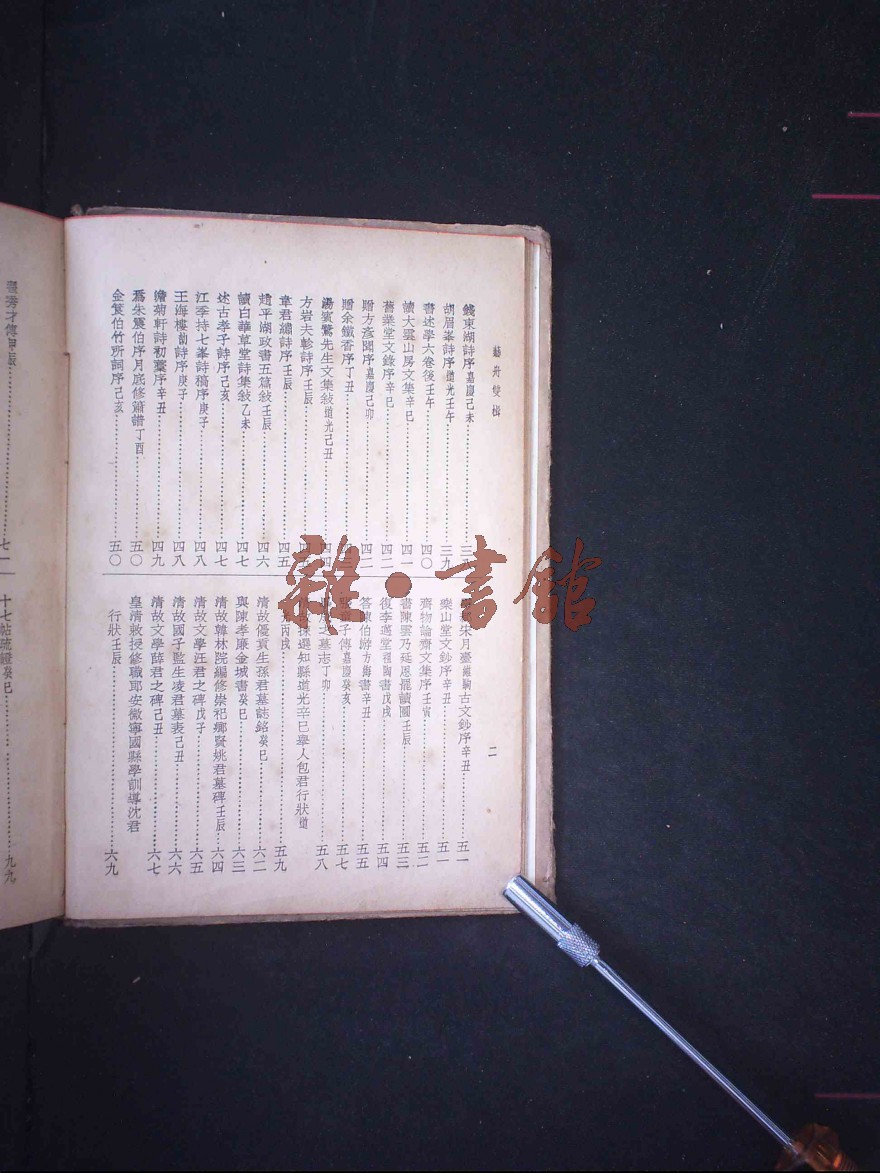 藝舟雙楫
二
錢東湖詩序嘉慶己未
胡眉峯詩序道光壬午 三九
書述學六卷後壬午 四〇
讀大雲山房文集辛巳 四一
舊業堂文錄序辛巳 四二
贈方彥聞序嘉慶己卯 四二
贈余鐵香序丁丑
湯賓鷺先生文集敍道光己丑
方岩夫軫詩序壬辰
韋君繡詩序壬辰 四五
趙平湖政書五篇敍壬辰 四六
讀白華草堂詩集敍乙未 四七
述古孝子詩序己亥 四七
江季持七峯詩稿序庚子 四八
王海樓蘭詩序庚子 四八
澹菊軒詩初藁序辛丑 四九
爲朱震伯序月底修簫譜丁酉 五〇
金筤伯竹所詞序己亥 五〇
朱月臺 古文鈔序辛丑 五一
樂山堂文鈔序辛丑 五一
齊物論齋文集序壬寅 五二
書陳雲乃延恩罷讀圖壬辰 五三
復李邁堂祖陶書戊戌 五四
答陳伯游方海書辛丑 五五
子傳嘉慶癸亥 五七
之墓志丁卯 五八
揀選知縣道光辛巳舉人包君行狀道
光丙戌 五九
清故優貢生孫君墓誌銘癸巳 六二
與陳孝廉金城書癸巳 六三
清故翰林院編修崇祀鄉賢姚君墓碑壬辰 六四
清故文學汪君之碑戊子 六五
清故國子監生凌君墓表己丑 六六
清故文學薛君之碑己丑 六七
皇清敕授修職郎安徽寧國縣學訓導沈君
行狀壬辰 六九
秀才傳甲辰 七一
十七帖疏證癸巳 九九
雜·書館